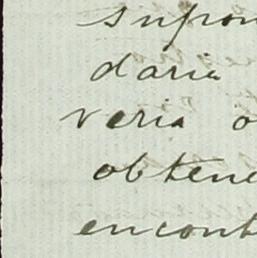 supon
daria
veria o
obtene
encont